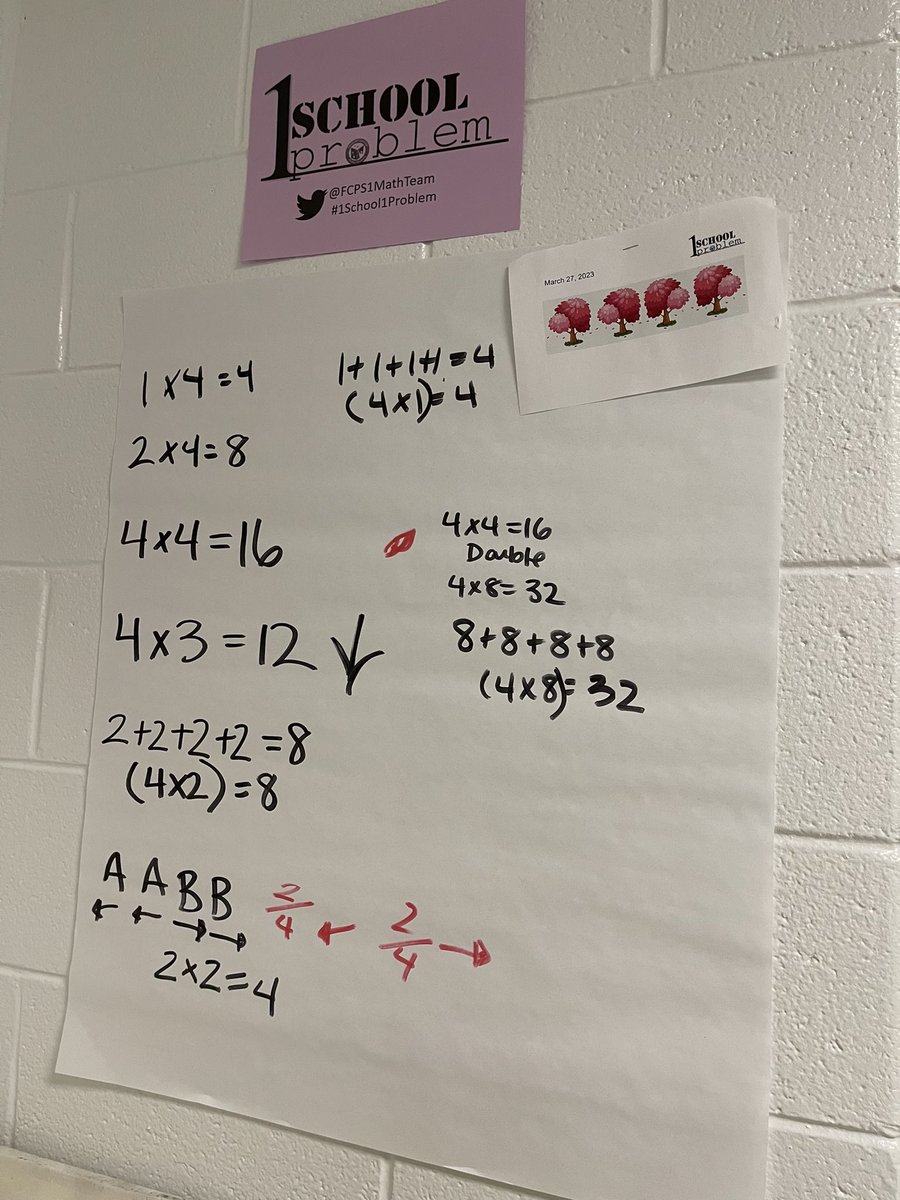 1SCHOOL
problem
@FCPS1MathTeam
#1School1Problem
1SCHOOL
problem
March 27, 2023
1 x 4 = 4
2 x 4 = 8
4 x 4 = 16
4 x 3 = 12 ↓
2+2+2+2 = 8
(4x2) = 8
A A B B
← ← → →
2 x 2 = 4
2/4 ← 2/4 →
1+1+1+1 = 4
(4 x 1) = 4
4 x 4 = 16
Double
4 x 8 = 32
8+8+8+8
(4 x 8) = 32